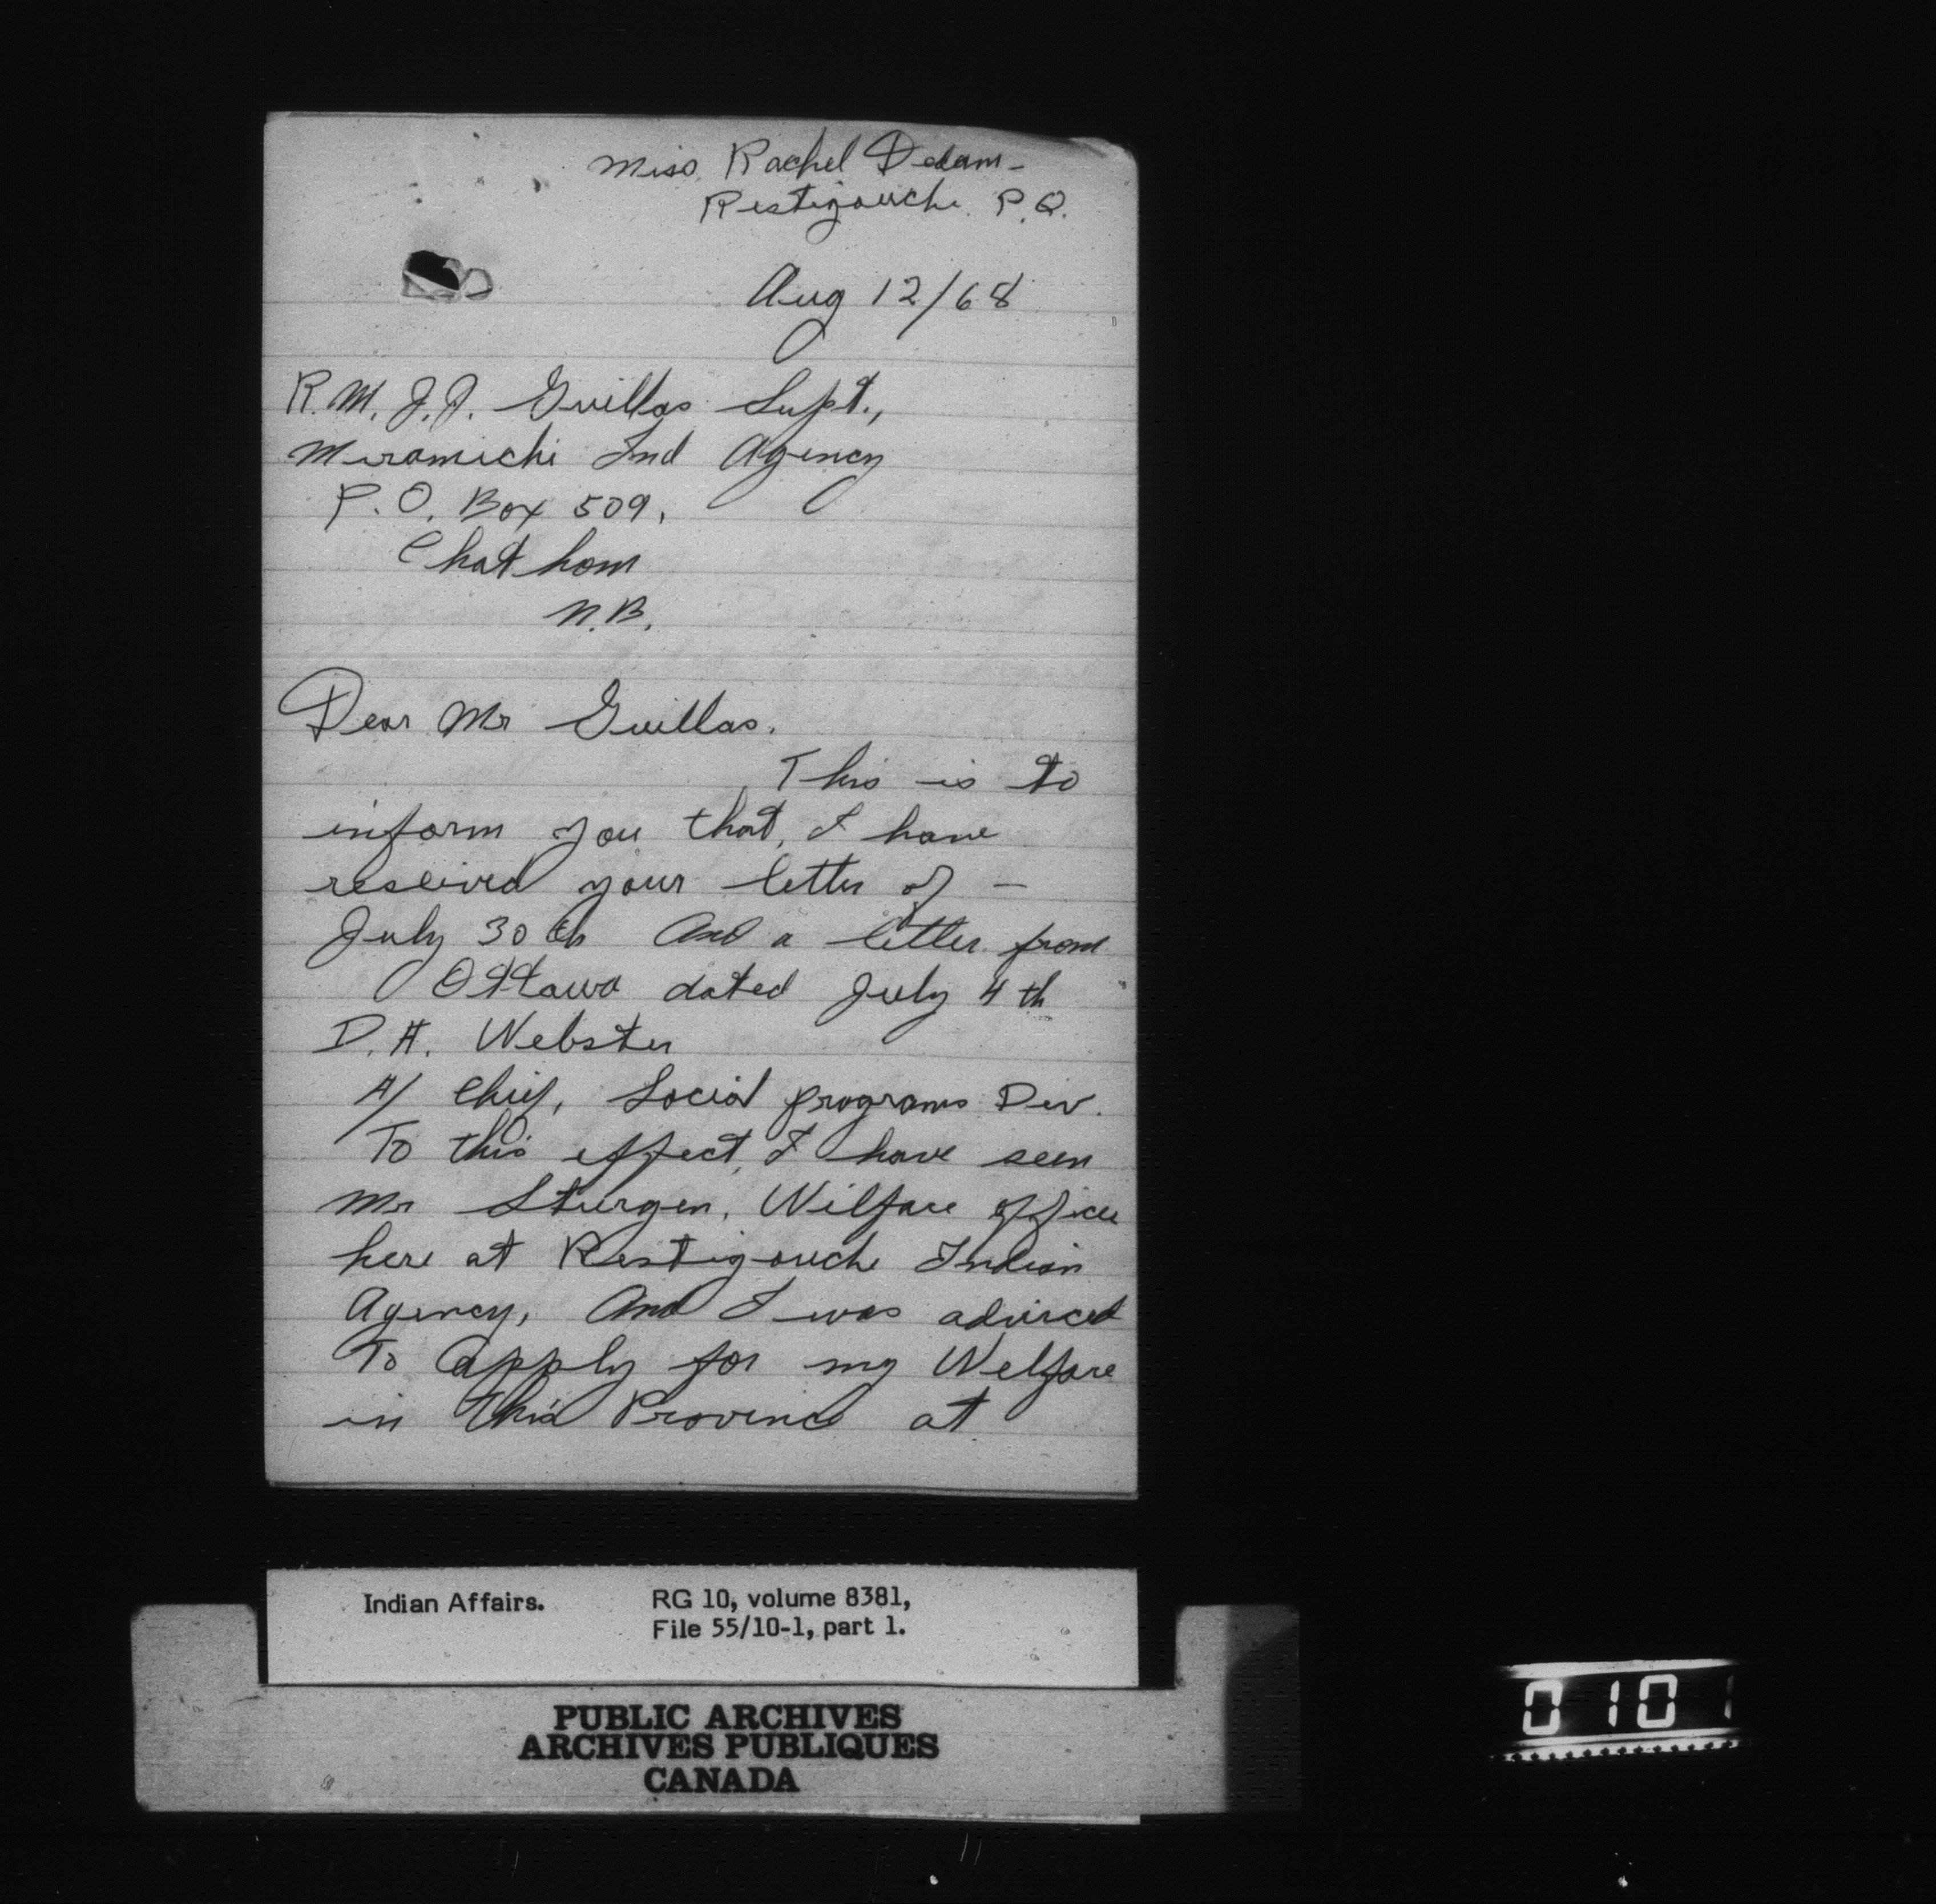 Miss. Rachel Dedam -
Restigouche. P.Q.
Aug 12/68
R.M. J.J. Guillas Supt.,
Miramichi Ind Agency
P.O. Box 509.
Chatham
N.B.
Dear Mr Guillas.
This is to
inform you that, I have
received your letter of -
July 30 th And a letter from
Ottawa dated July 4 th
D.A. Webster
A/ Chief, Social programs Div.
To this effect, I have seen
Mr Sturgen, Wilfare officer
here at Restigouche Indian
Agency, And I was adviced
To apply for my Welfare
in this Province at
Indian Affairs. RG 10, volume 8381,
File 55/10-1, part 1.
PUBLIC ARCHIVES
ARCHIVES PUBLIQUES
CANADA
0101